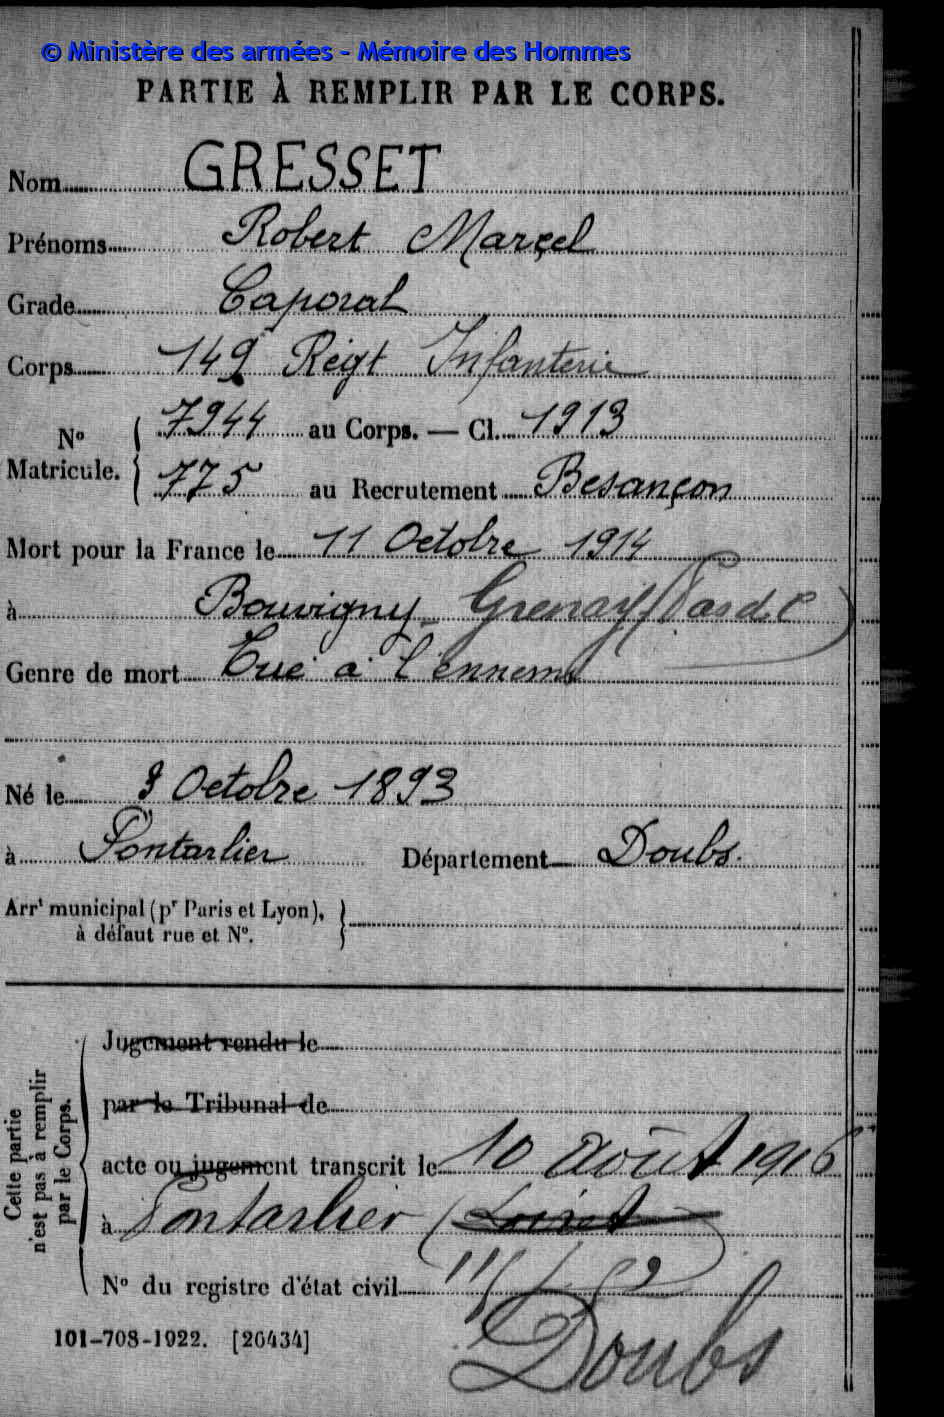 © Ministère des armées - Mémoire des Hommes
PARTIE À REMPLIR PAR LE CORPS.
Nom GRESSET
Prénoms Robert Marçel
Grade Caporal
Corps 149e Régt Infanterie
No Matricule. { 7944 au Corps. — Cl. 1913
775 au Recrutement Besançon
Mort pour la France le 11 Octobre 1914
à Bouvigny - Grenay (Pas d. C)
Genre de mort Tué à l'ennemi
Né le 3 Octobre 1893
à Pontarlier Département Doubs.
Arrt municipal (pr Paris et Lyon),
à défaut rue et No.
Cette partie
n'est pas à remplir
par le Corps.
Jugement rendu le
par le Tribunal de
acte ou jugement transcrit le 10 août 1916
à Pontarlier (Loiret)
No du registre d'état civil
Doubs
101-708-1922. [26434]